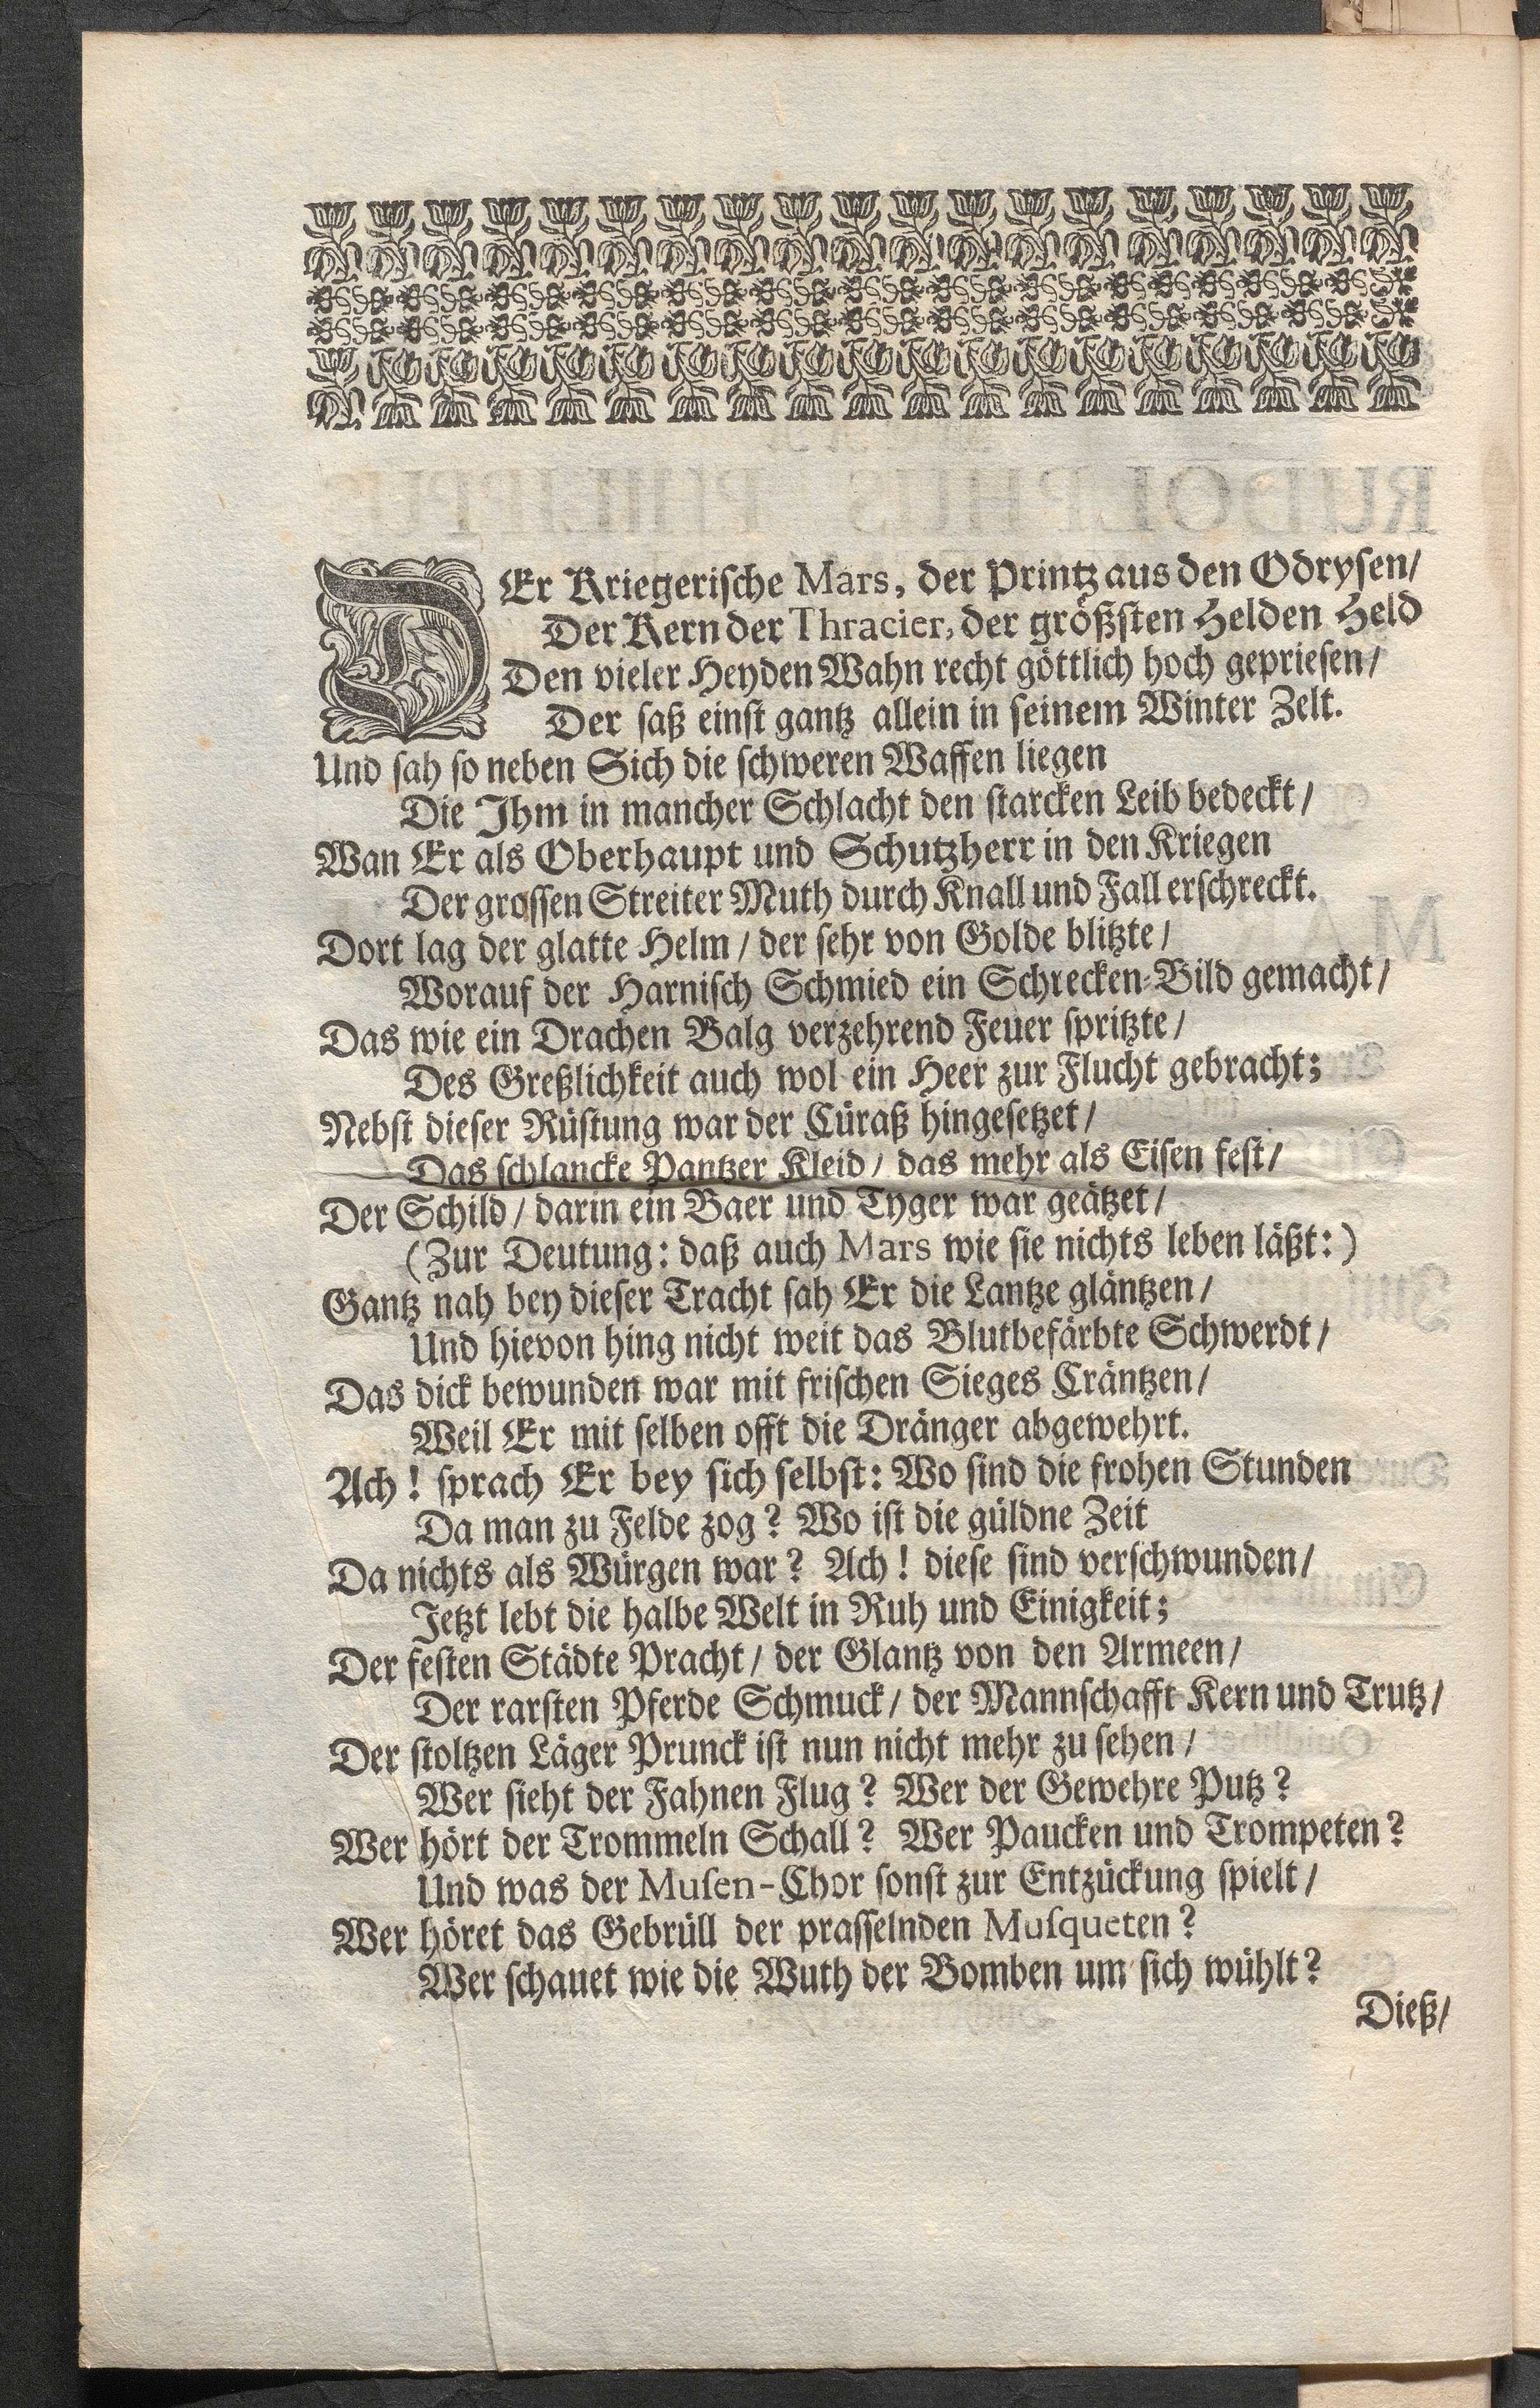 DEr Kriegerische Mars, der Printz aus den Odrysen/
Der Kern der Thracier, der größsten Helden Held
Den vieler Heyden Wahn recht göttlich hoch gepriesen/
Der saß einst gantz allein in seinem Winter Zelt.
Und sah so neben Sich die schweren Waffen liegen
Die Ihm in mancher Schlacht den starcken Leib bedeckt/
Wan Er als Oberhaupt und Schutzherr in den Kriegen
Der grossen Streiter Muth durch Knall und Fall erschreckt.
Dort lag der glatte Helm/ der sehr von Golde blitzte/
Worauf der Harnisch Schmied ein Schrecken-Bild gemacht/
Das wie ein Drachen Balg verzehrend Feuer spritzte/
Des Greßlichkeit auch wol ein Heer zur Flucht gebracht;
Nebst dieser Rüstung war der Cüraß hingesetzet/
Das schlancke Pantzer Kleid/ das mehr als Eisen fest/
Der Schild/ darin ein Baer und Tyger war geätzet/
(Zur Deutung: daß auch Mars wie sie nichts leben läßt:)
Gantz nah bey dieser Tracht sah Er die Lantze gläntzen/
Und hievon hing nicht weit das Blutbefärbte Schwerdt/
Das dick bewunden war mit frischen Sieges Cräntzen/
Weil Er mit selben offt die Dränger abgewehrt.
Ach! sprach Er bey sich selbst: Wo sind die frohen Stunden
Da man zu Felde zog? Wo ist die güldne Zeit
Da nichts als Würgen war? Ach! diese sind verschwunden/
Jetzt lebt die halbe Welt in Ruh und Einigkeit;
Der festen Städte Pracht/ der Glantz von den Armeen/
Der rarsten Pferde Schmuck/ der Mannschafft Kern und Trutz/
Der stoltzen Läger Prunck ist nun nicht mehr zu sehen/
Wer sieht der Fahnen Flug? Wer der Gewehre Putz?
Wer hört der Trommeln Schall? Wer Paucken und Trompeten?
Und was der Musen-Chor sonst zur Entzückung spielt/
Wer höret das Gebrüll der prasselnden Musqueten?
Wer schauet wie die Wuth der Bomben um sich wühlt?
Dieß/